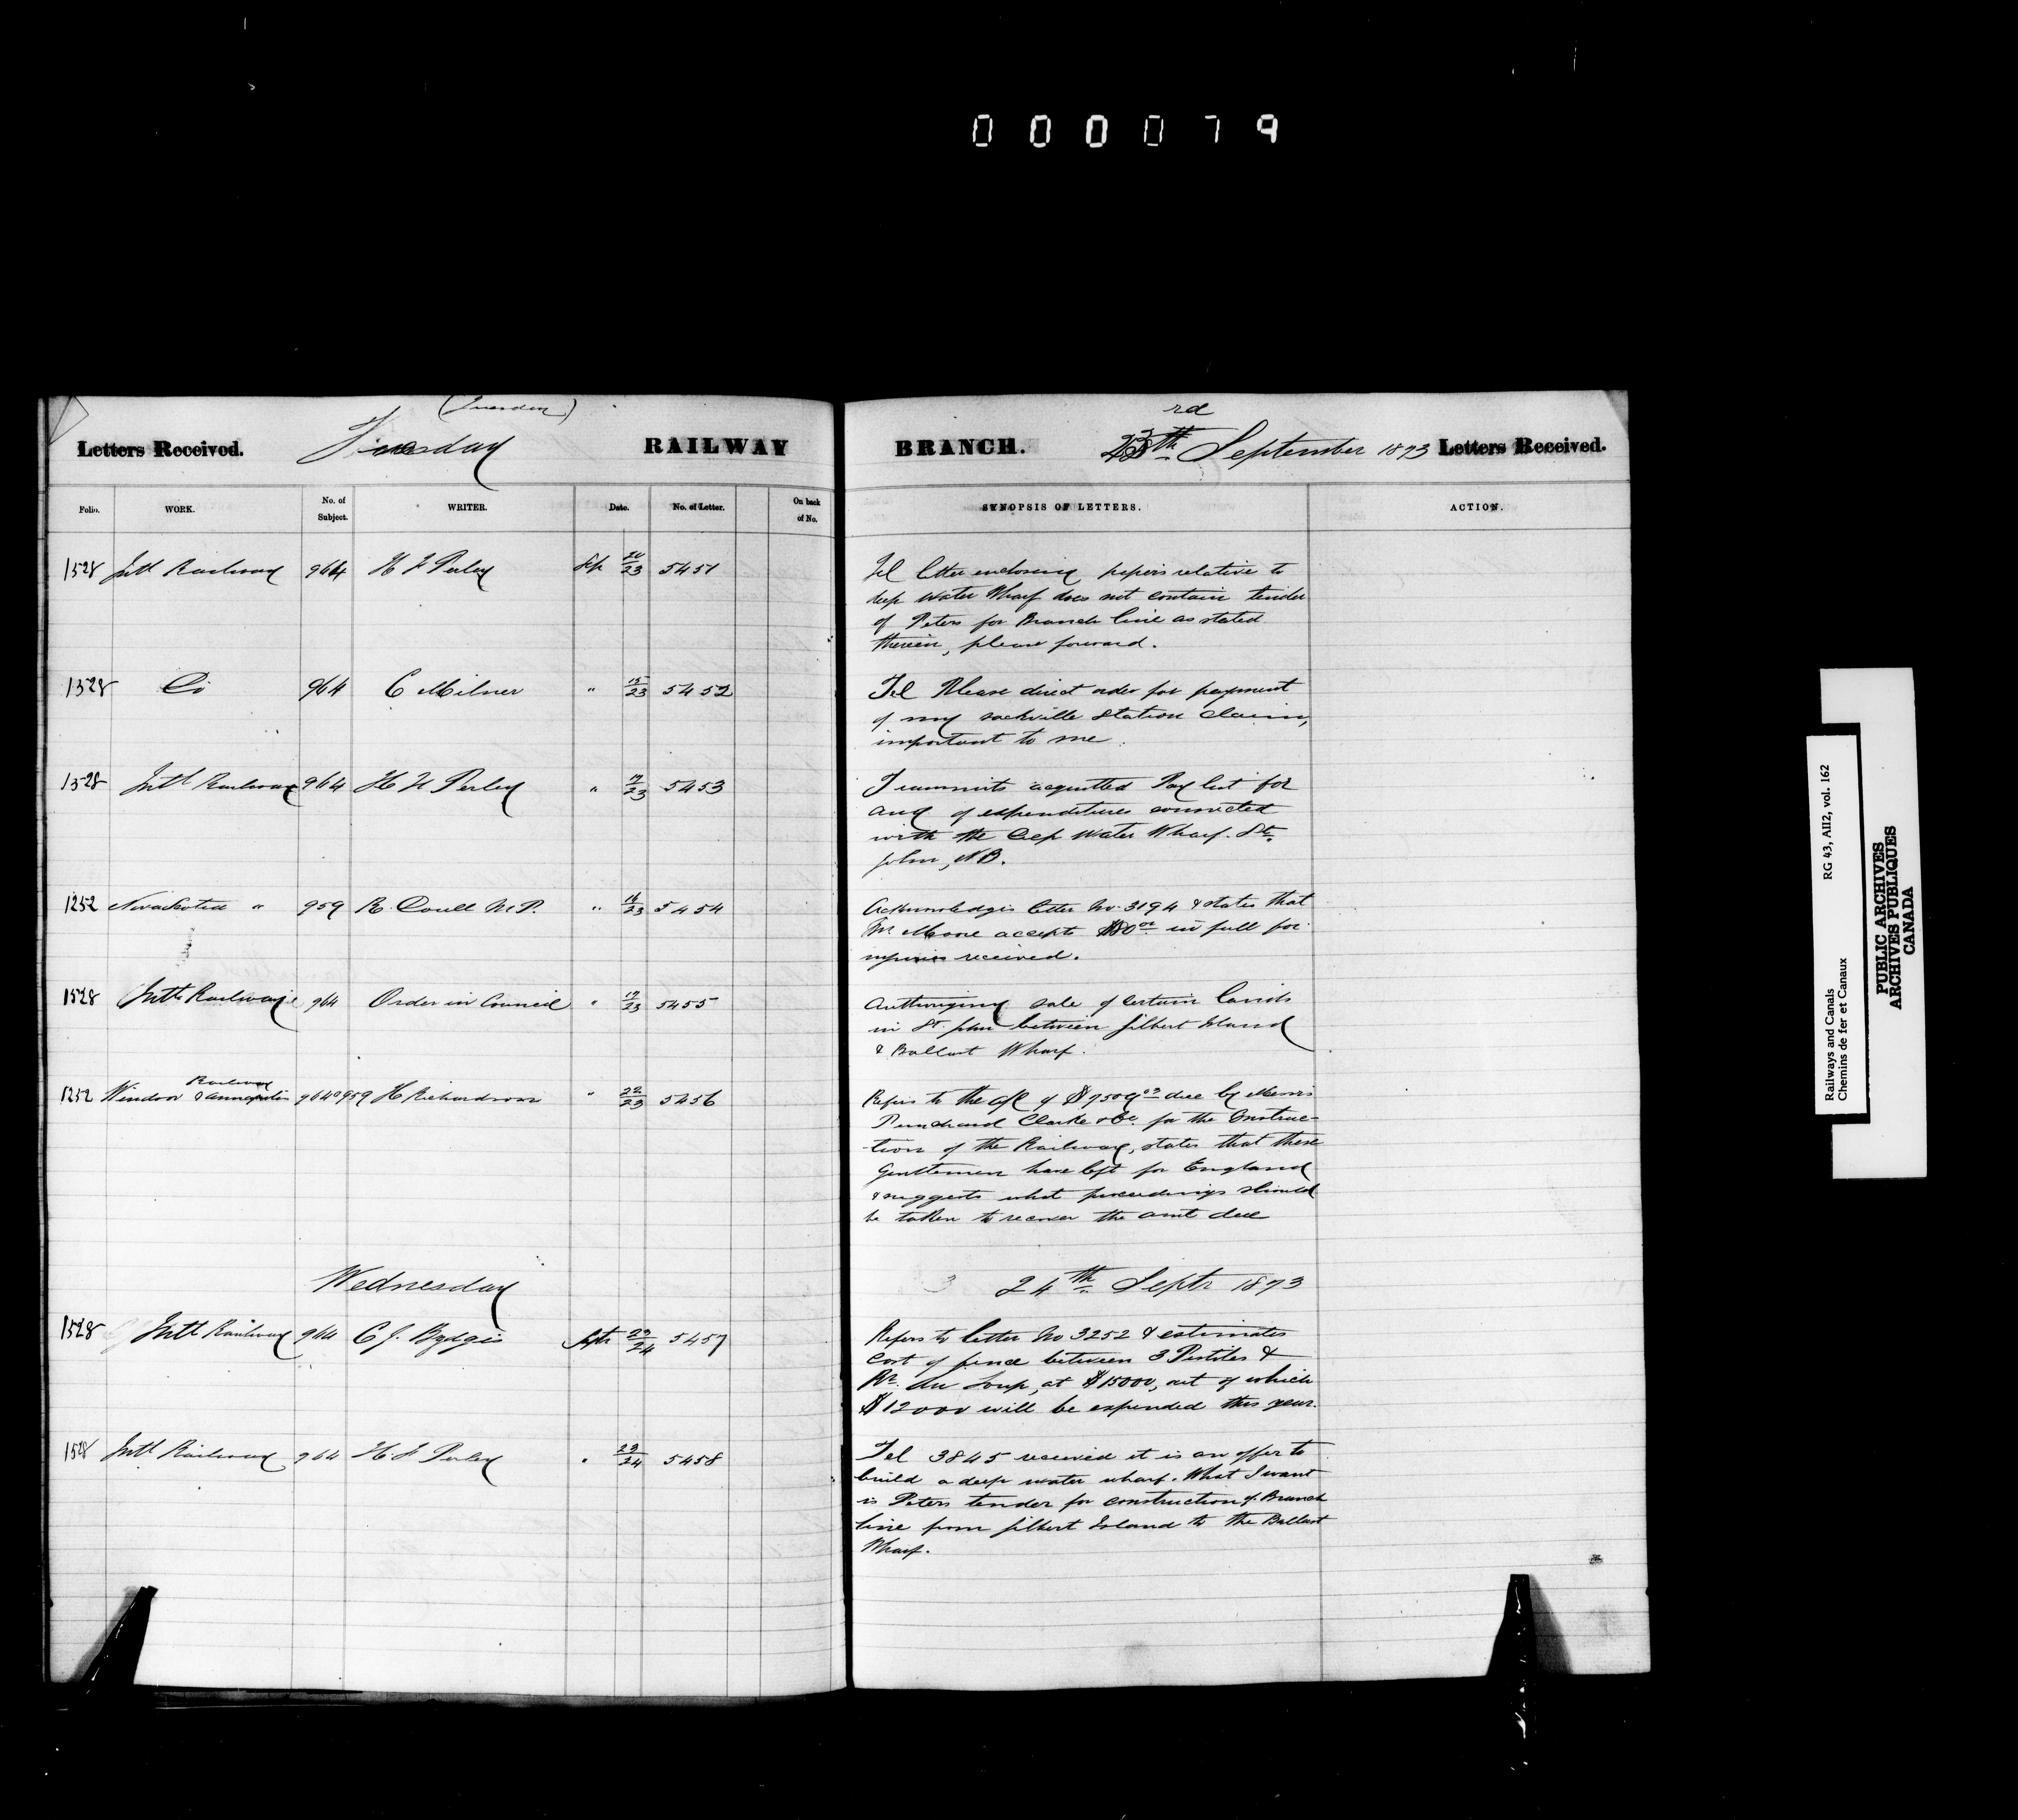 000079
(Tuesday)
Letters Received. Tuesday RAILWAY
Folio. WORK. No. of Subject. WRITER. Date. No. of Letter. On back of No.
1528 Intl Railway 964 H F Perley Sep 20/23 5451
1528 Do 964 C Milner " 15/23 5452
1528 Intl Railway 964 H F Perley " 19/23 5453
1252 Nova Scotia " 959 R. Coull M.P. " 16/23 5454
1528 Intl Railway 964 Order in Council " 19/23 5455
Railway
1252 Windsor & Annapolis 964 959 H Richardson " 22/23 5456
Wednesday
1528 Intl Railway 964 C J. Brydges Septr 23/24 5457
1528 Intl Railway 964 H. F Perley " 23/24 5458
rd
BRANCH. 23th September 1873 Letters Received.
SYNOPSIS OF LETTERS. ACTION.
Tel letter enclosing papers relative to
deep Water Wharf does not contain tender
of Peters for Branch line as stated
therein, please forward.
Tel Please direct order for payment
of my sackville station claim,
important to me.
Transmits acquitted Pay list for
Aug of expenditures connected
with the Deep Water Wharf. St.
John, N.B.
Acknowledges letter No. 3194 & states that
Mr Moore accepts $80 00 in full for
injuries received.
Authorizing sale of certain lands
in St. John between Gilbert Island
& Ballast Wharf.
Refers to the a/c of due by Messrs
Punchard Clarke & Co. for the Construc-
tion of the Railway, states that these
Gentlemen have left for England
& suggests what proceedings should
be taken to recover the amt due
24th Septr 1873
Refers to letter No 3252 & estimates
Cost of fence between 3 Pistoles &
Rr. du Loup, at $15000, out of which
$12000 will be expended this year.
Tel 3845 received it is an offer to
build a deep water wharf. What I want
is Peters tender for construction of Branch
line from Gilbert Island to the Ballast
Wharf.
Railways and Canals RG 43, AII2, vol. 162
Chemins de fer et Canaux
PUBLIC ARCHIVES
ARCHIVES PUBLIQUES
CANADA